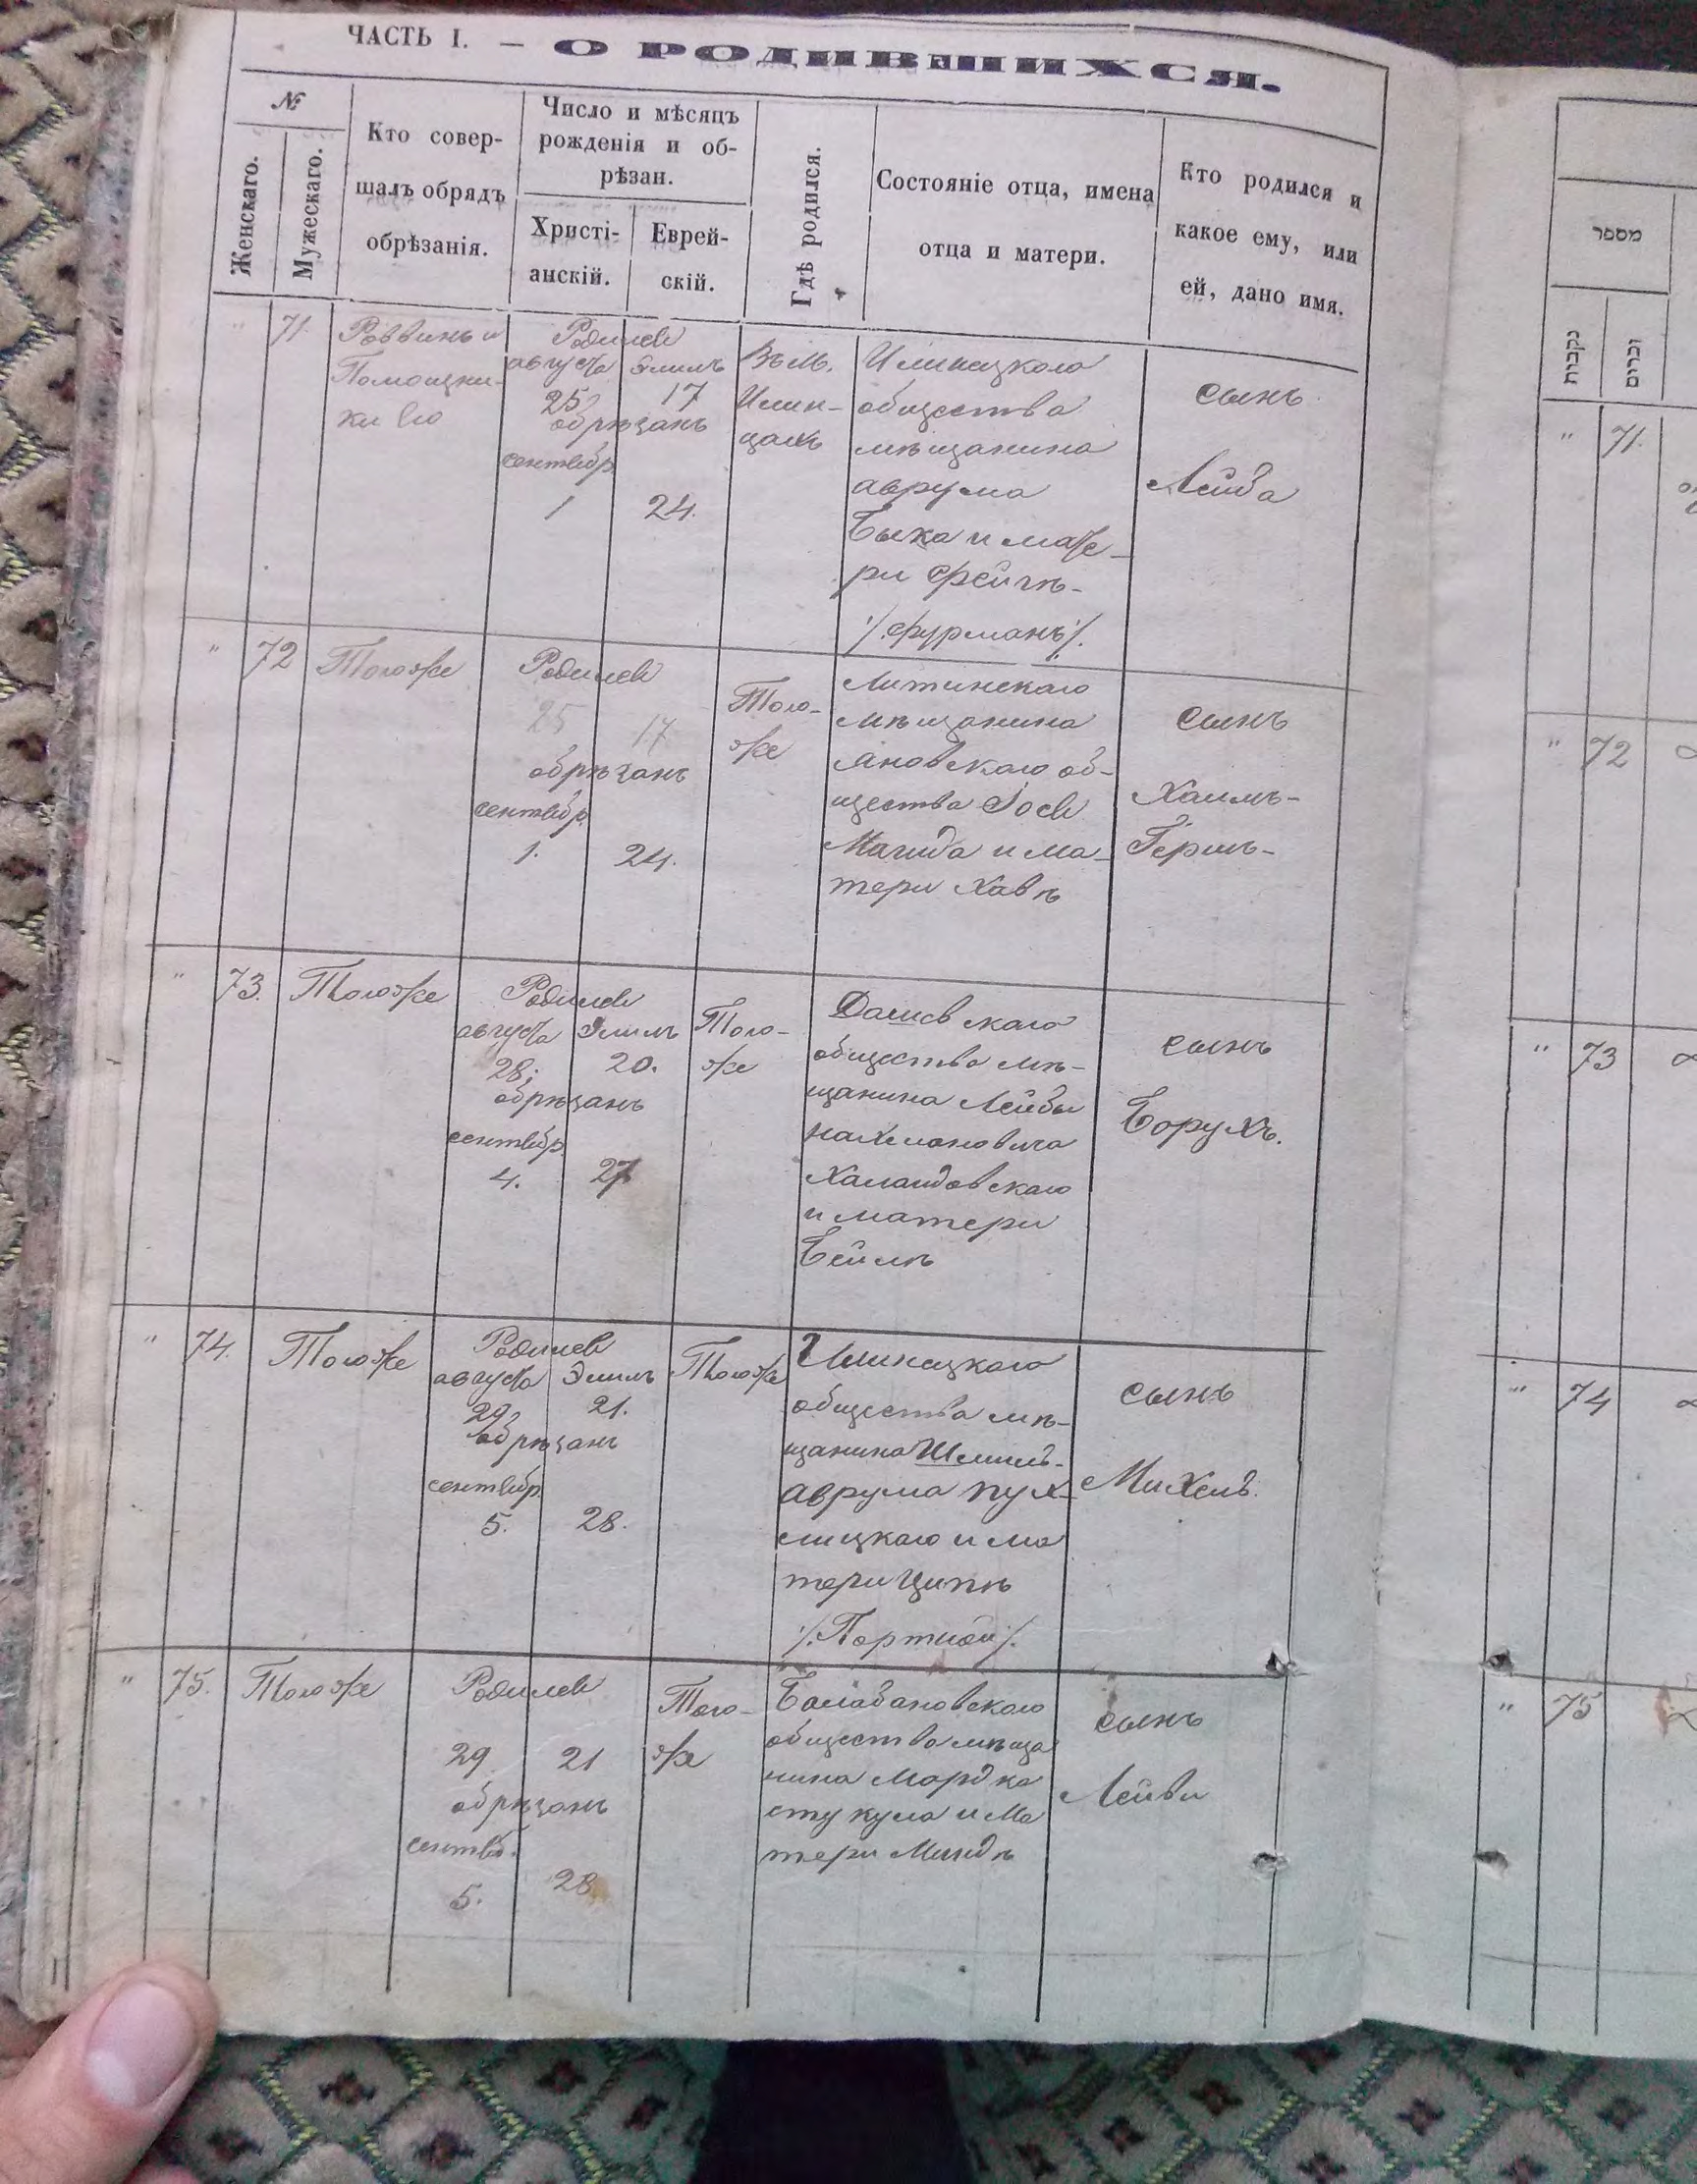 ЧАСТЬ I. — О РОДИВШИХСЯ.
№
Женскаго.
Мужескаго.
Кто совер-
шалъ обрядъ
обрѣзанія.
Число и мѣсяцъ
рожденія и об-
рѣзан.
Христі-
анскій.
Еврей-
скій.
Гдѣ родился.
Состояніе отца, имена
отца и матери.
Кто родился и
какое ему, или
ей, дано имя.
" 71.
Раввинъ и
Помощни-
ки его
Родился
августа Элилъ
25 17
обрѣзанъ
сентябр.
1 24.
Въ м.
Илин-
цахъ
Илинецкаго
общества
мѣщанина
Аврума
Быка и мате-
ри Фейгѣ-
/. Фурманъ /.
сынъ
Лейба
" 72
Тогоже
Родился
25 17
обрѣзанъ
сентябр.
1. 24.
Того-
же
Литинскаго
мѣщанина
Яновскаго об-
щества Іося
Магида и ма-
тери Хавѣ
сынъ
Хаимъ-
Гершъ-
" 73.
Тогоже
Родился
августа Элилъ
28. 20.
обрѣзанъ
сентябр.
4. 27
Того-
же
Дашевскаго
общества мѣ-
щанина Лейбы
Нахмановича
и матери
Бейлѣ
сынъ
Борухъ.
" 74.
Тогоже
Родился
августа Элилъ
29 21.
обрѣзанъ
сентябр.
5. 28.
Тогоже
Илинецкаго
общества мѣ-
щанина Шмиль-
Аврума Пух-
лицкаго и ма
тери Ципѣ
/. Портной /.
сынъ
Михель.
" 75.
Тогоже
Родился
29 21
обрѣзанъ
сентяб.
5. 28
Того-
же
Балабановскаго
общества мѣща
нина Мордка
Стукула и Ма
тери Миндѣ
сынъ
Лейви
מספר
נקבות
זכרים
" 71.
" 72
" 73
" 74
" 75